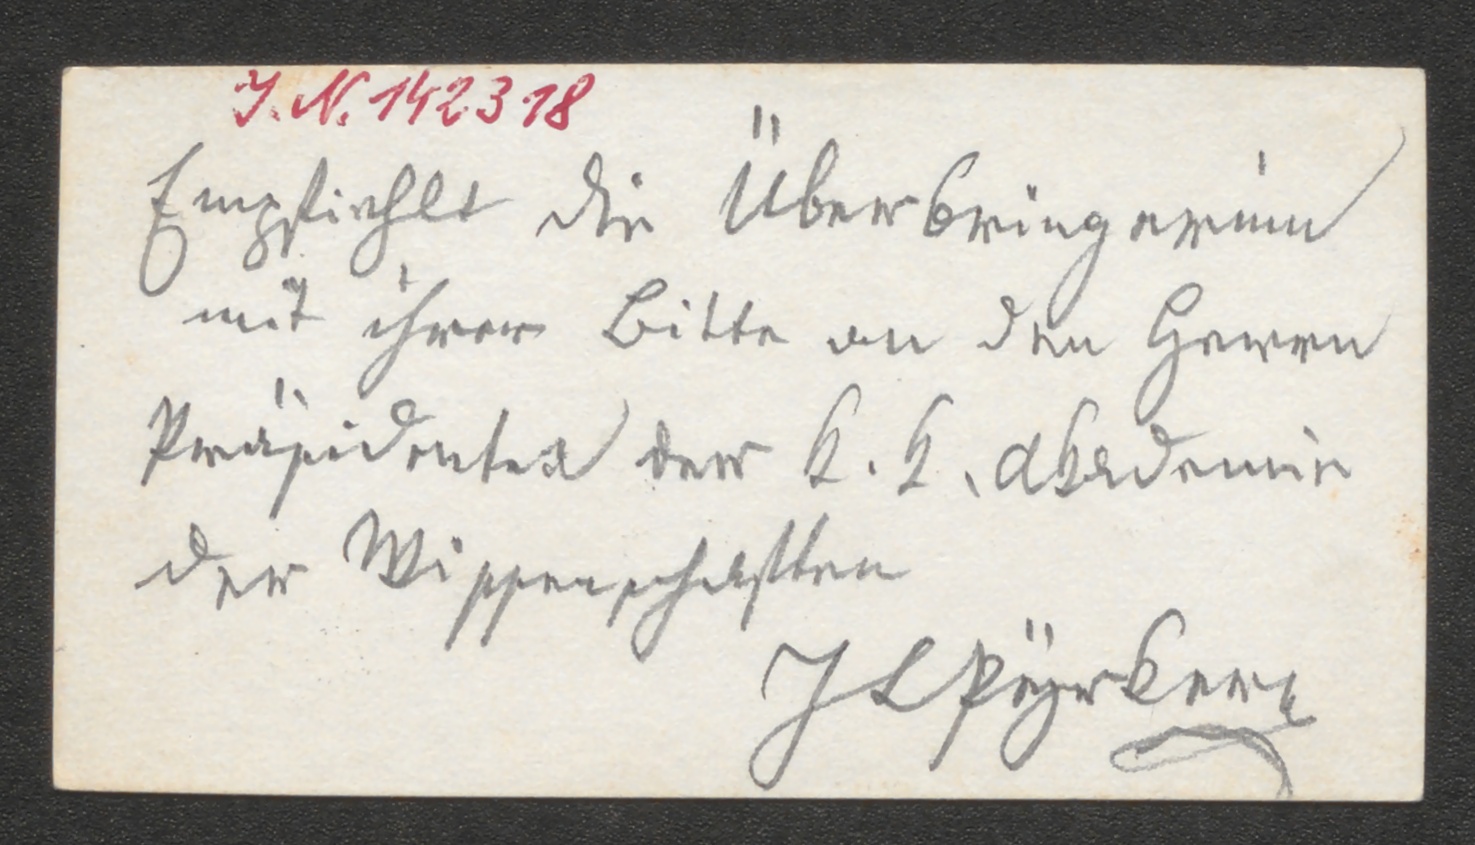 J. N. 142318
Empfiehlt die Überbringerinn
mit ihrer Bitte an den Herren
Präsidenten der k. k. Akademie
der Wissenschaften
J L Pÿrker